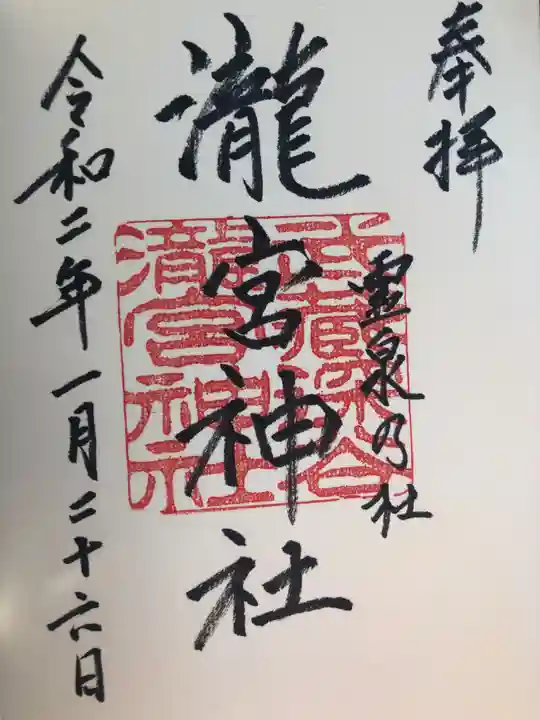 奉拝
霊泉乃社
瀧宮神社
令和二年一月二十六日
武蔵深谷
瀧宮神社